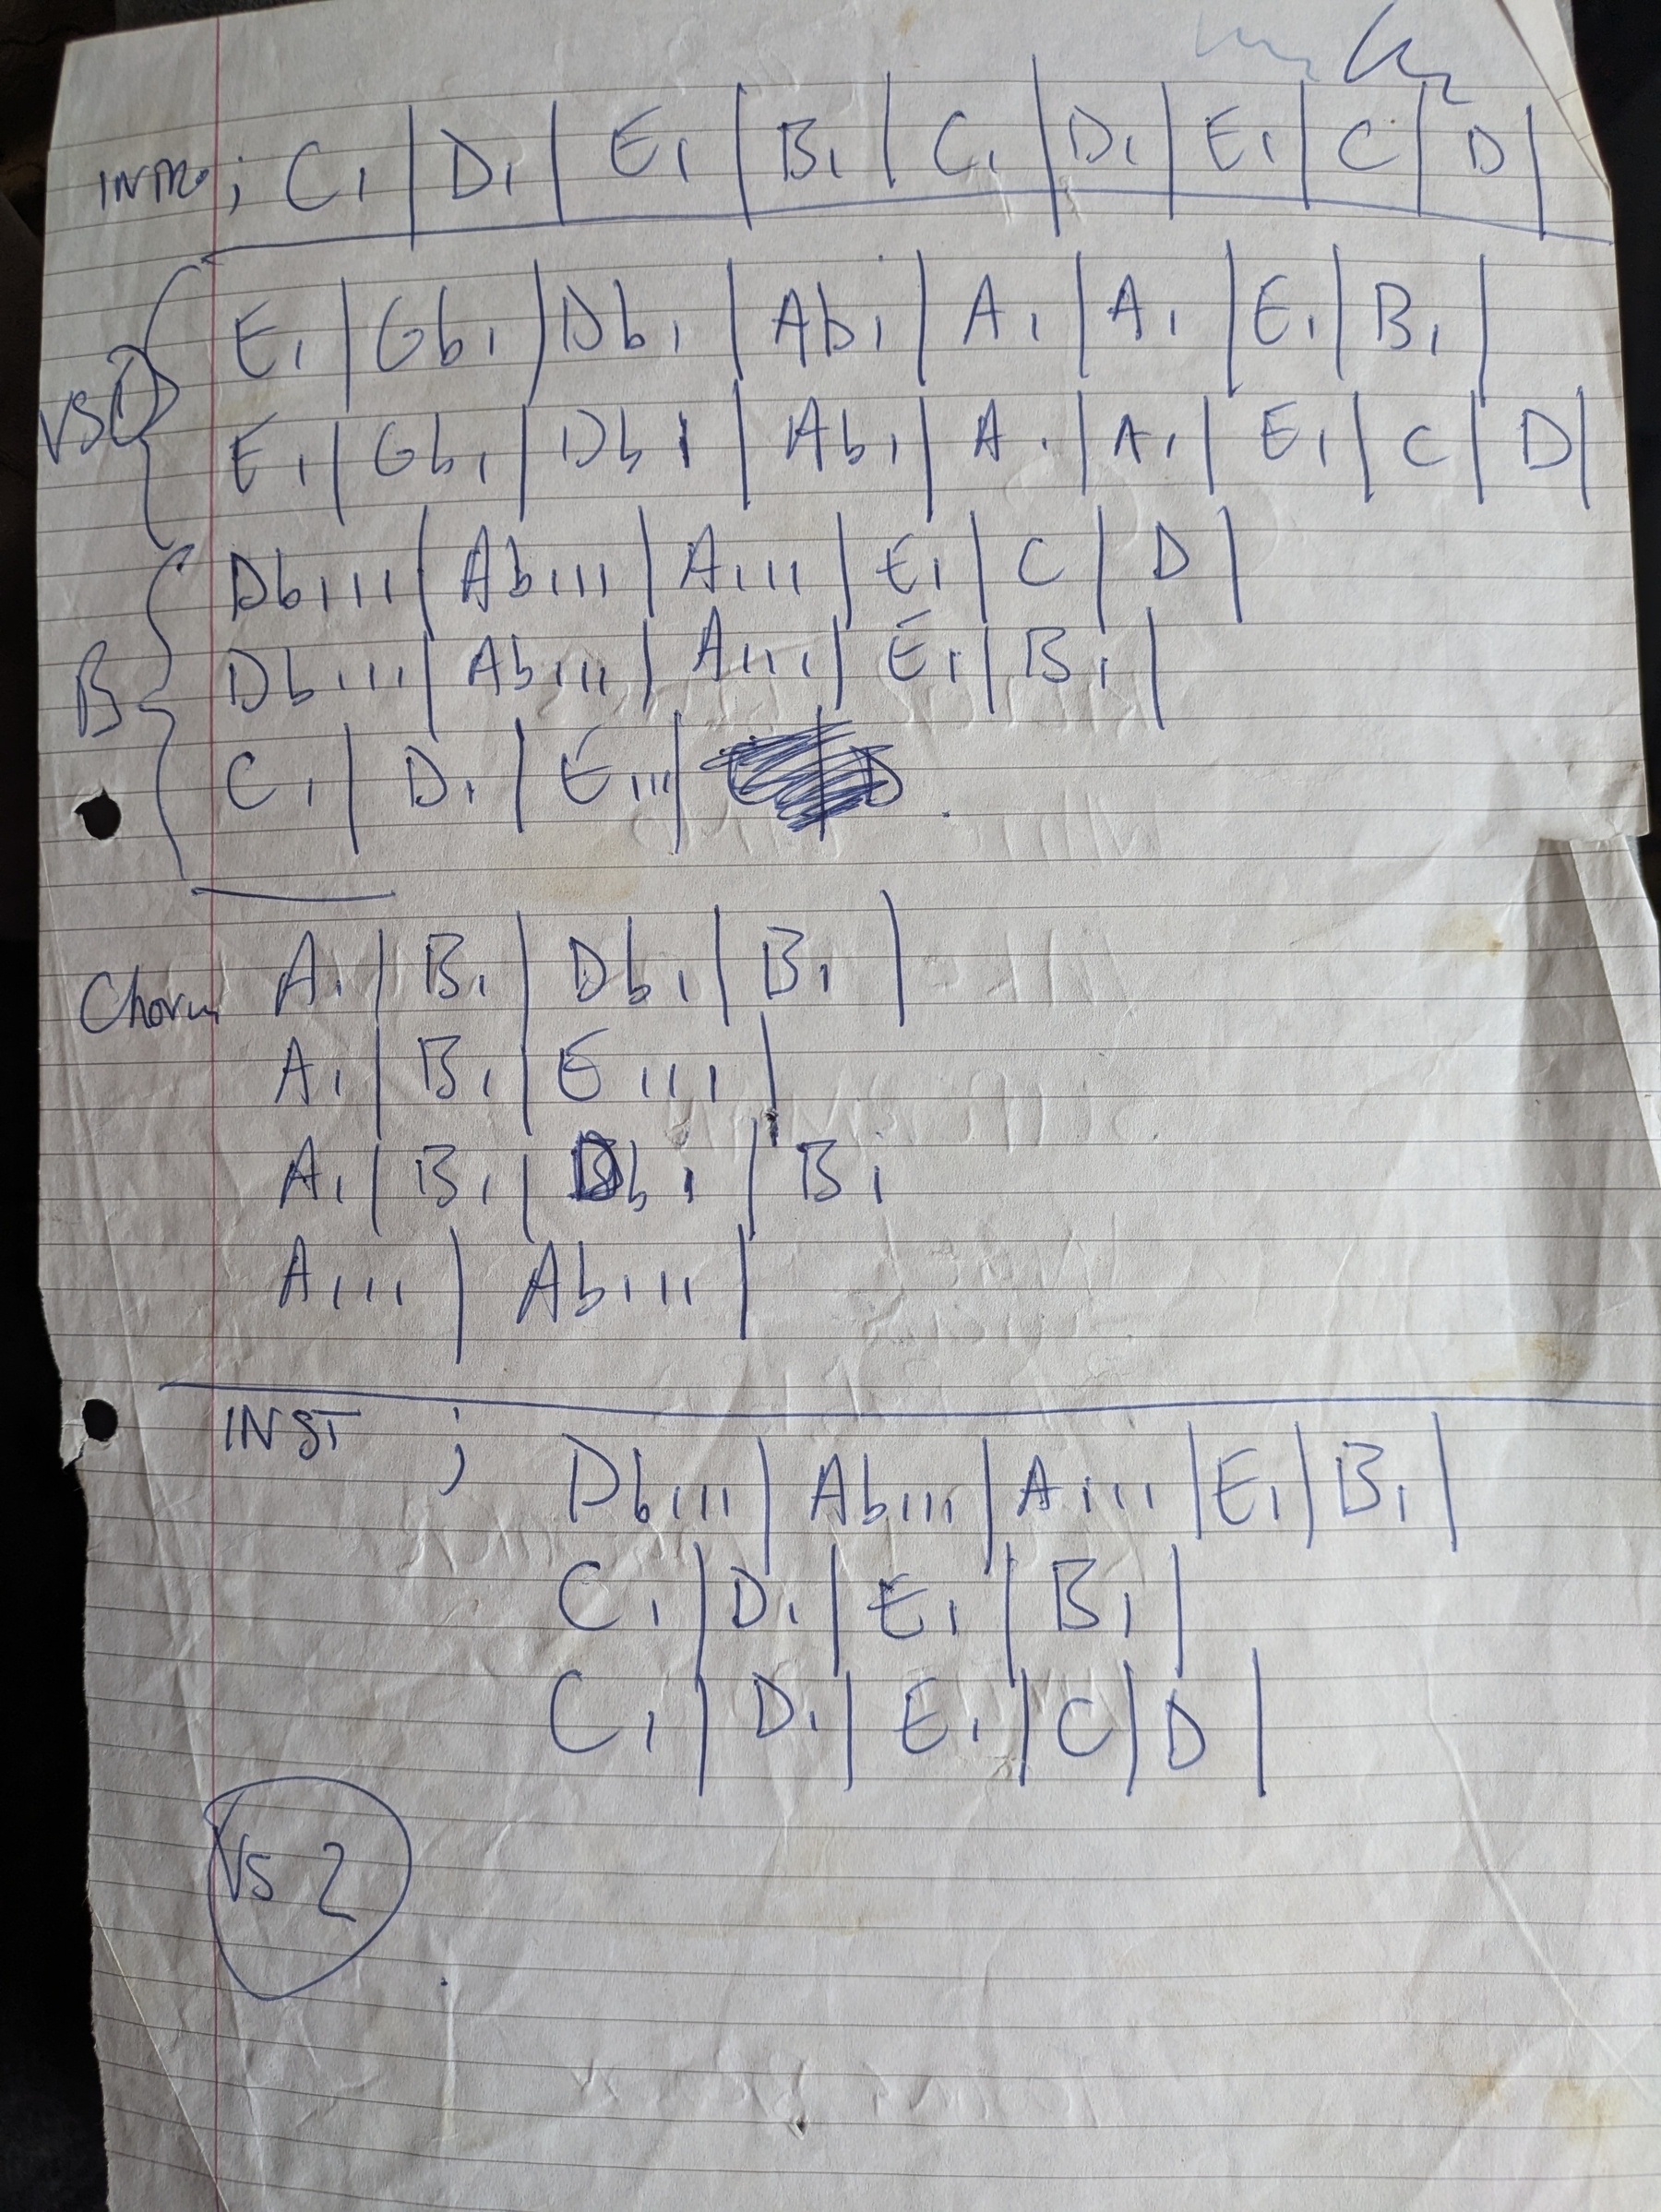 INTRO ; C ı | D ı | E ı | B ı | C ı | D ı | E ı | C | D |
VS 1 E ı | Gb ı | Db ı | Ab ı | A ı | A ı | E ı | B ı |
E ı | Gb ı | Db ı | Ab ı | A ı | A ı | E ı | C | D |
B Db ı ı ı | Ab ı ı ı | A ı ı ı | E ı | C | D |
Db ı ı ı | Ab ı ı ı | A ı ı ı | E ı | B ı |
C ı | D ı | E ı ı ı |
Chorus A ı | B ı | Db ı | B ı |
A ı | B ı | E ı ı ı |
A ı | B ı | Db ı | B ı
A ı ı ı | Ab ı ı ı |
INST ; Db ı ı ı | Ab ı ı ı | A ı ı ı | E ı | B ı |
C ı | D ı | E ı | B ı |
C ı | D ı | E ı | C | D |
VS 2